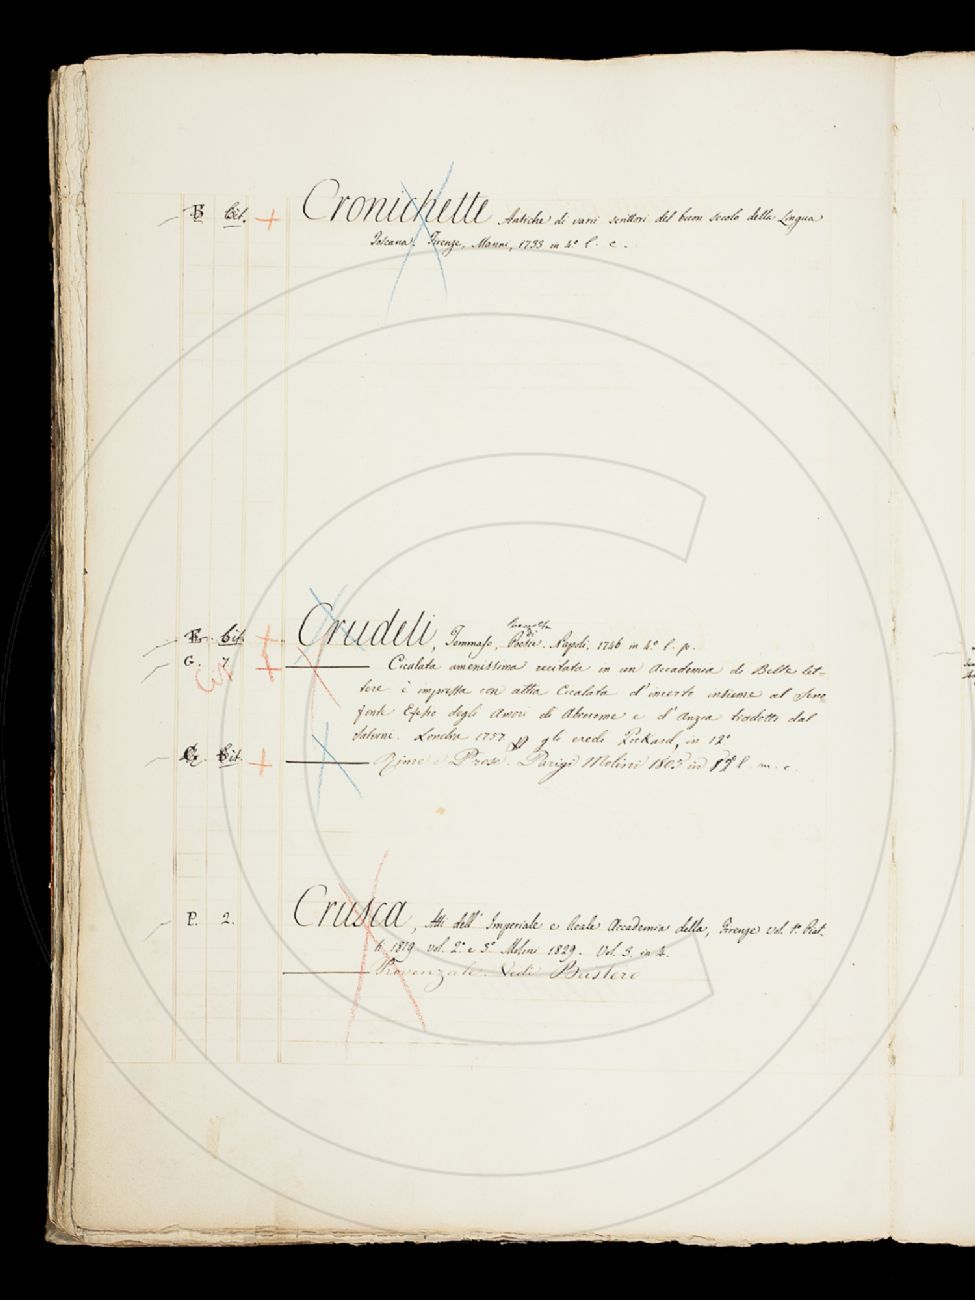 B Bit. Cronichette Antiche di varii scrittori del buon secolo della Lingua
Toscana. Firenze, Manni, 1733 in 4.º l. c.
E. Bit. Crudeli, Tommaso, Raccolta di Poesie. Napoli, 1746 in 4.º l. p.
G. 7 Cicalata amenissima recitata in un Accademia di Belle let-
tere è impressa con altra Cicalata d'incerto insieme al Seno
fonte Efesio degli Amori di Abrocome e d'Anzia tradotti dal
Salvini. Londra 1757 pp gli eredi Pickard, in 12º
G. Bit. Rime e Prose. Parigi Molini 1805 in 12º l. m. c.
P. 2. Crusca, Atti dell' Imperiale e Reale Accademia della, Firenze vol 1.º Piat.
ti 1819 vol. 2.º e 3.º Molini 1829. Vol. 3. in 4.
Provenzale. Vedi Bastero